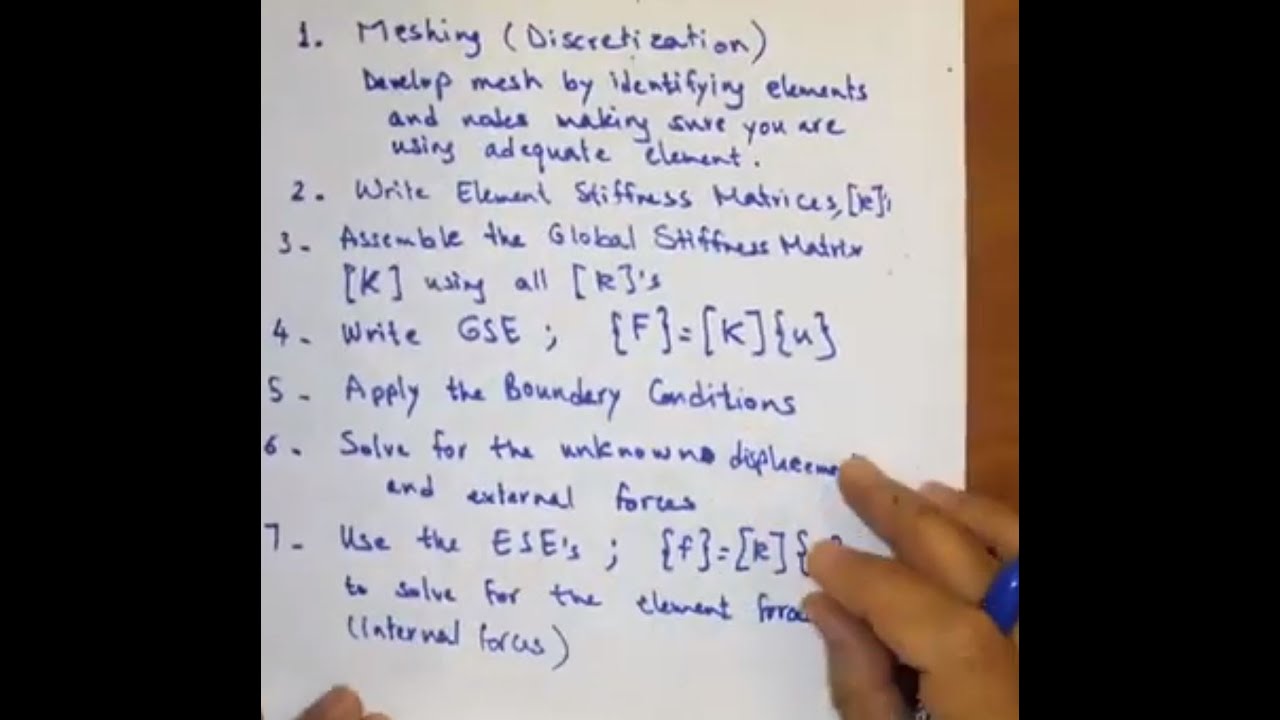 1. Meshing (Discretization)
Develop mesh by identifying elements
and nodes making sure you are
using adequate element.
2. Write Element Stiffness Matrices, [k]'s
3- Assemble the Global Stiffness Matrix
[K] using all [k]'s
4- Write GSE ; {F}=[K]{u}
5- Apply the Boundary Conditions
6. Solve for the unknown
and external forces
7- Use the ESE's ; {f}=[k]{
to solve for the element
(Internal forces)